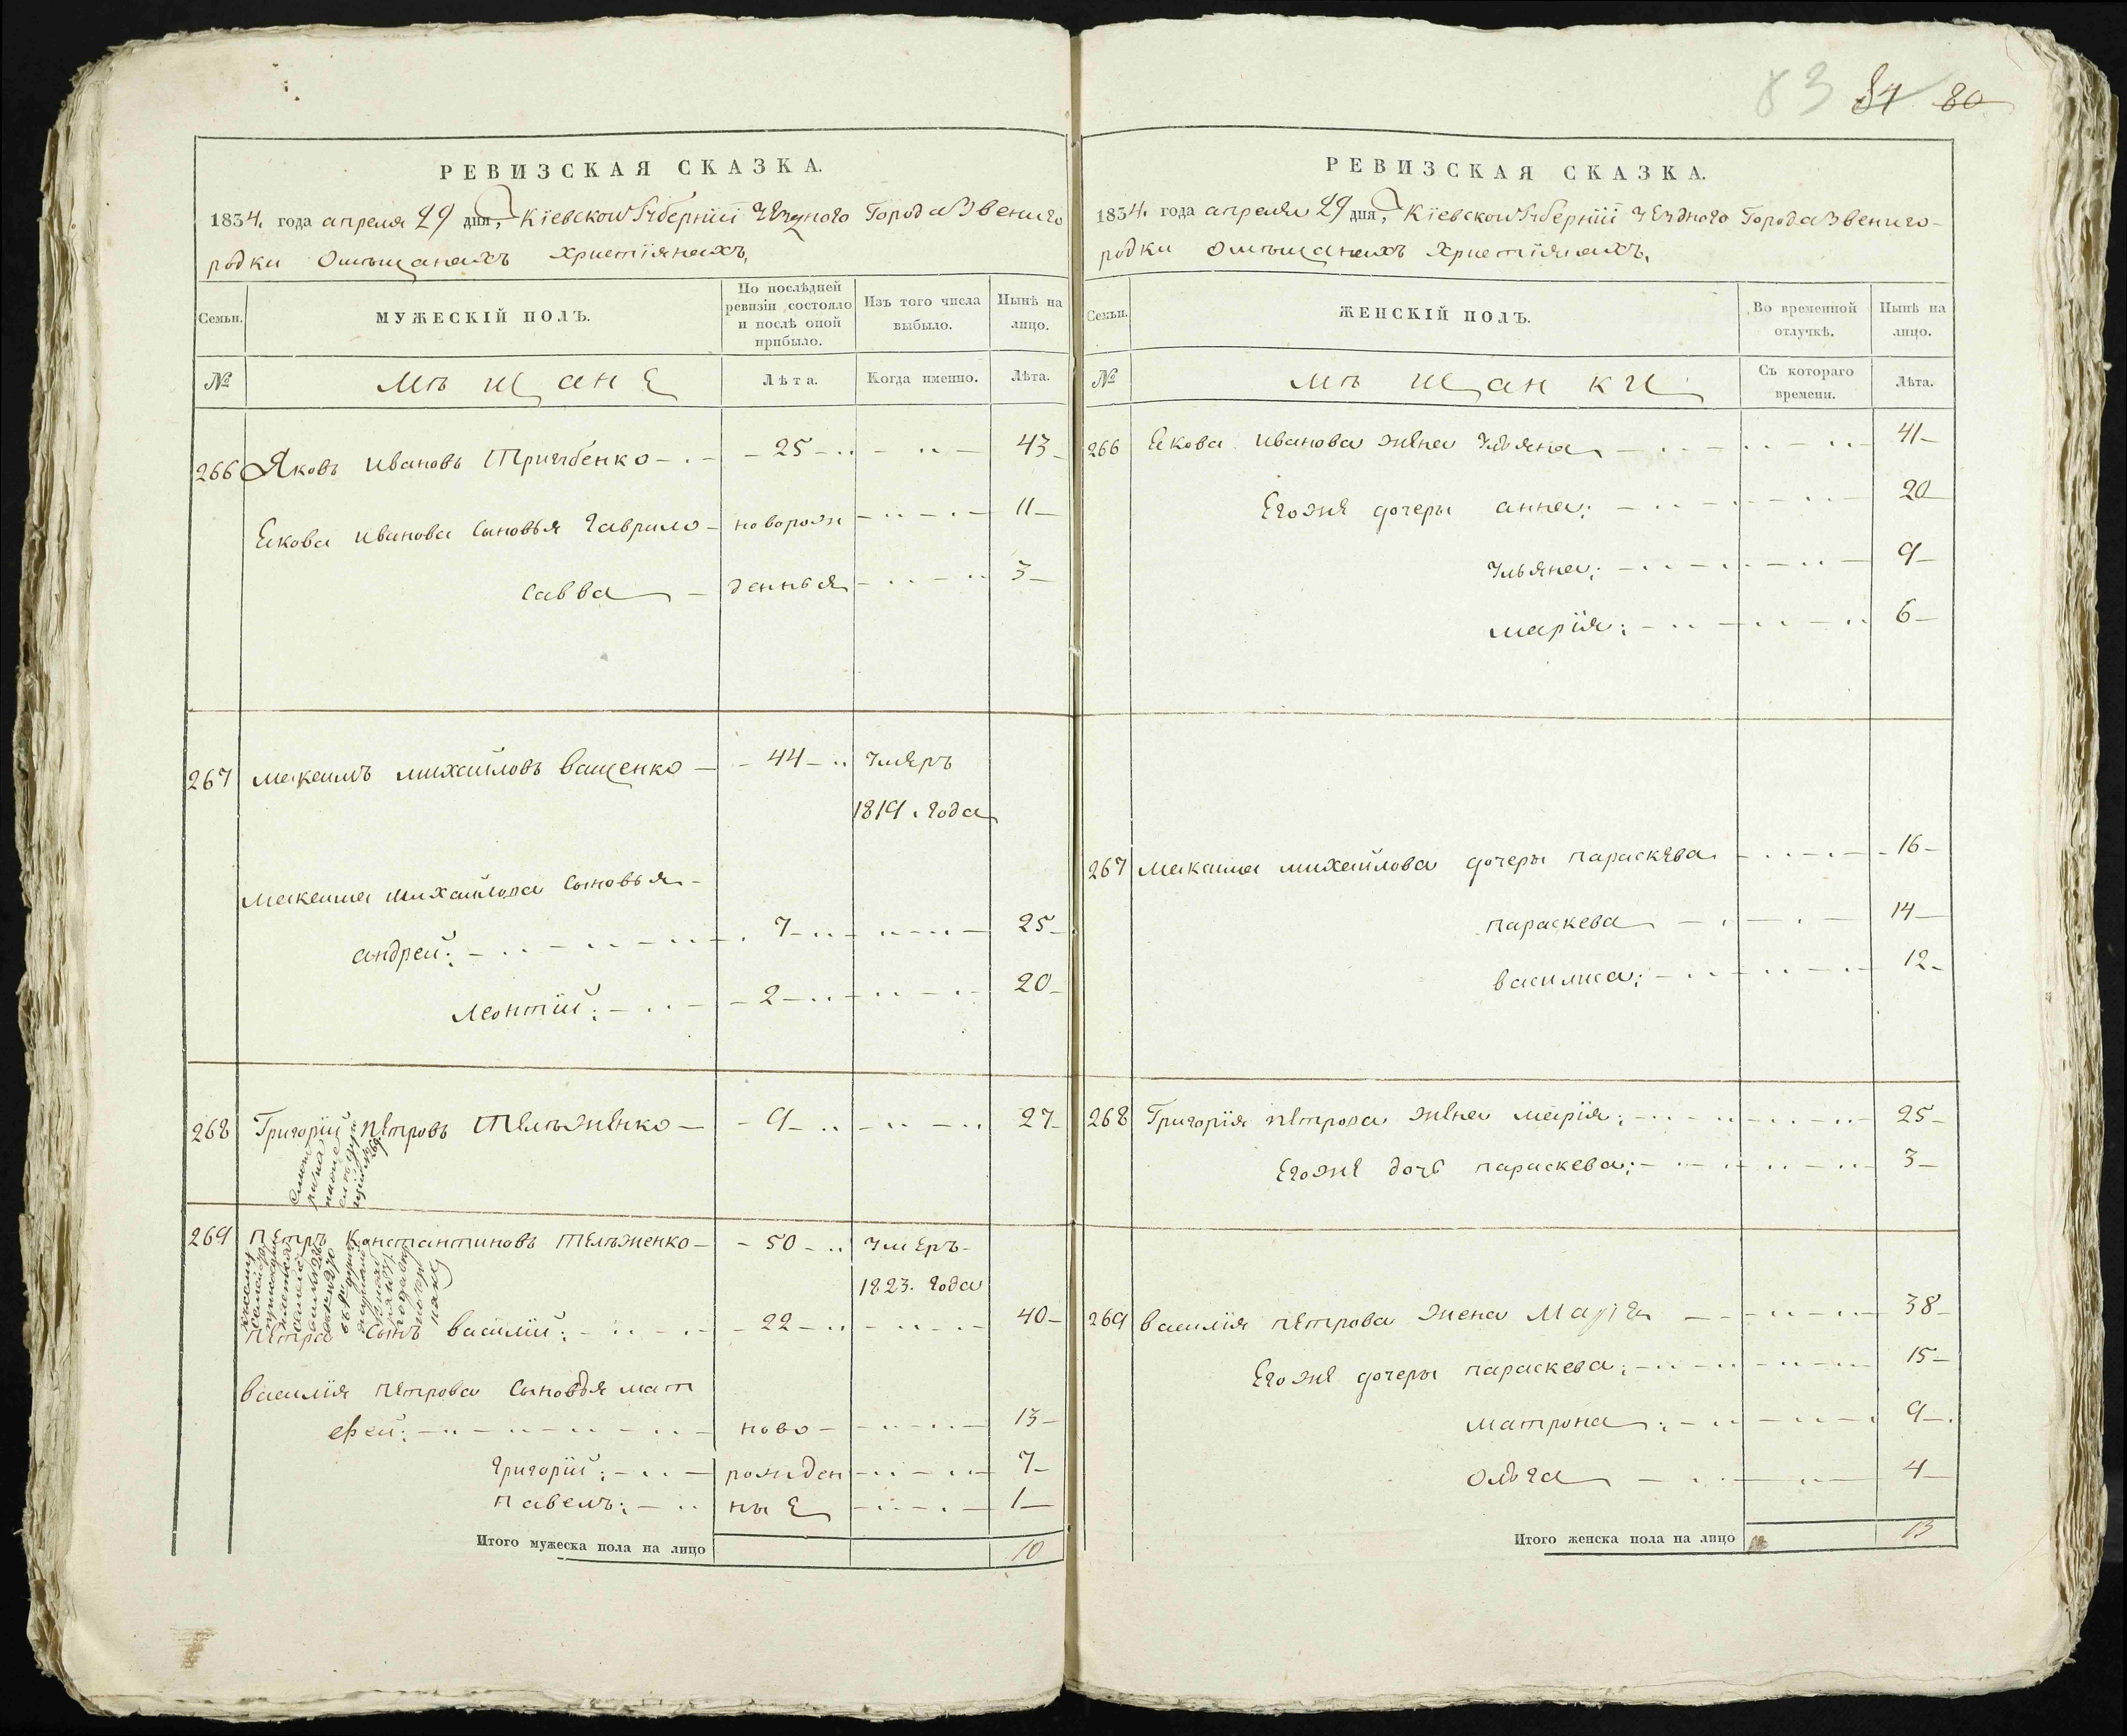 83 84 80
РЕВИЗСКАЯ СКАЗКА.
1834. года апреля 29 дня, Кіевской Губерніи Уездного Города Звениго
родки Омѣщанахъ Христіянахъ,
Семьи.
МУЖЕСКІЙ ПОЛЪ.
По послѣдней ревизіи состояло и послѣ оной прибыло.
Изъ того числа выбыло.
Нынѣ на лицо.
№
мѣщане
Лѣта.
Когда именно.
Лѣта.
266 Яковъ Ивановъ 25 43
Якова Иванова Сыновья Гаврило новорож 11
Савва денныя 3
267 Максимъ Михайловъ Ващенко 44 умеръ
1819. года
Максима Михайлова Сыновья
андрей: 7 25
леонтій: 2 20
268 Григорій Петровъ Тележенко 9 27
269 Петръ Константиновъ Тележенко 50 умеръ
1823. года
Петра Сынъ Василій: 22 40
Василія Петрова Сыновья мат
ѳей: ново 13
Григорій: рожден 7
павелъ: ные 1
Итого мужеска пола на лицо 10
РЕВИЗСКАЯ СКАЗКА.
1834. года апреля 29 дня, Кіевской Губерніи Уездного Города Звениго-
родки Омѣщанахъ Христіянахъ.
Семьи.
ЖЕНСКІЙ ПОЛЪ.
Во временной отлучкѣ.
Нынѣ на лицо.
№
мѣщанки
Съ котораго времени.
Лѣта.
266 Якова Иванова жена Ульяна 41
Егоже дочеры анна: 20
Ульяна: 9
марія: 6
267 Максима михайлова дочеры параскева 16
параскева 14
василиса: 12
268 Григорія петрова жена марія: 25
Егоже дочь параскева: 3
269 Василія петрова жена Марія 38
Егоже дочеры параскева: 15
матрона: 9
Ольга 4
Итого женска пола на лицо 13